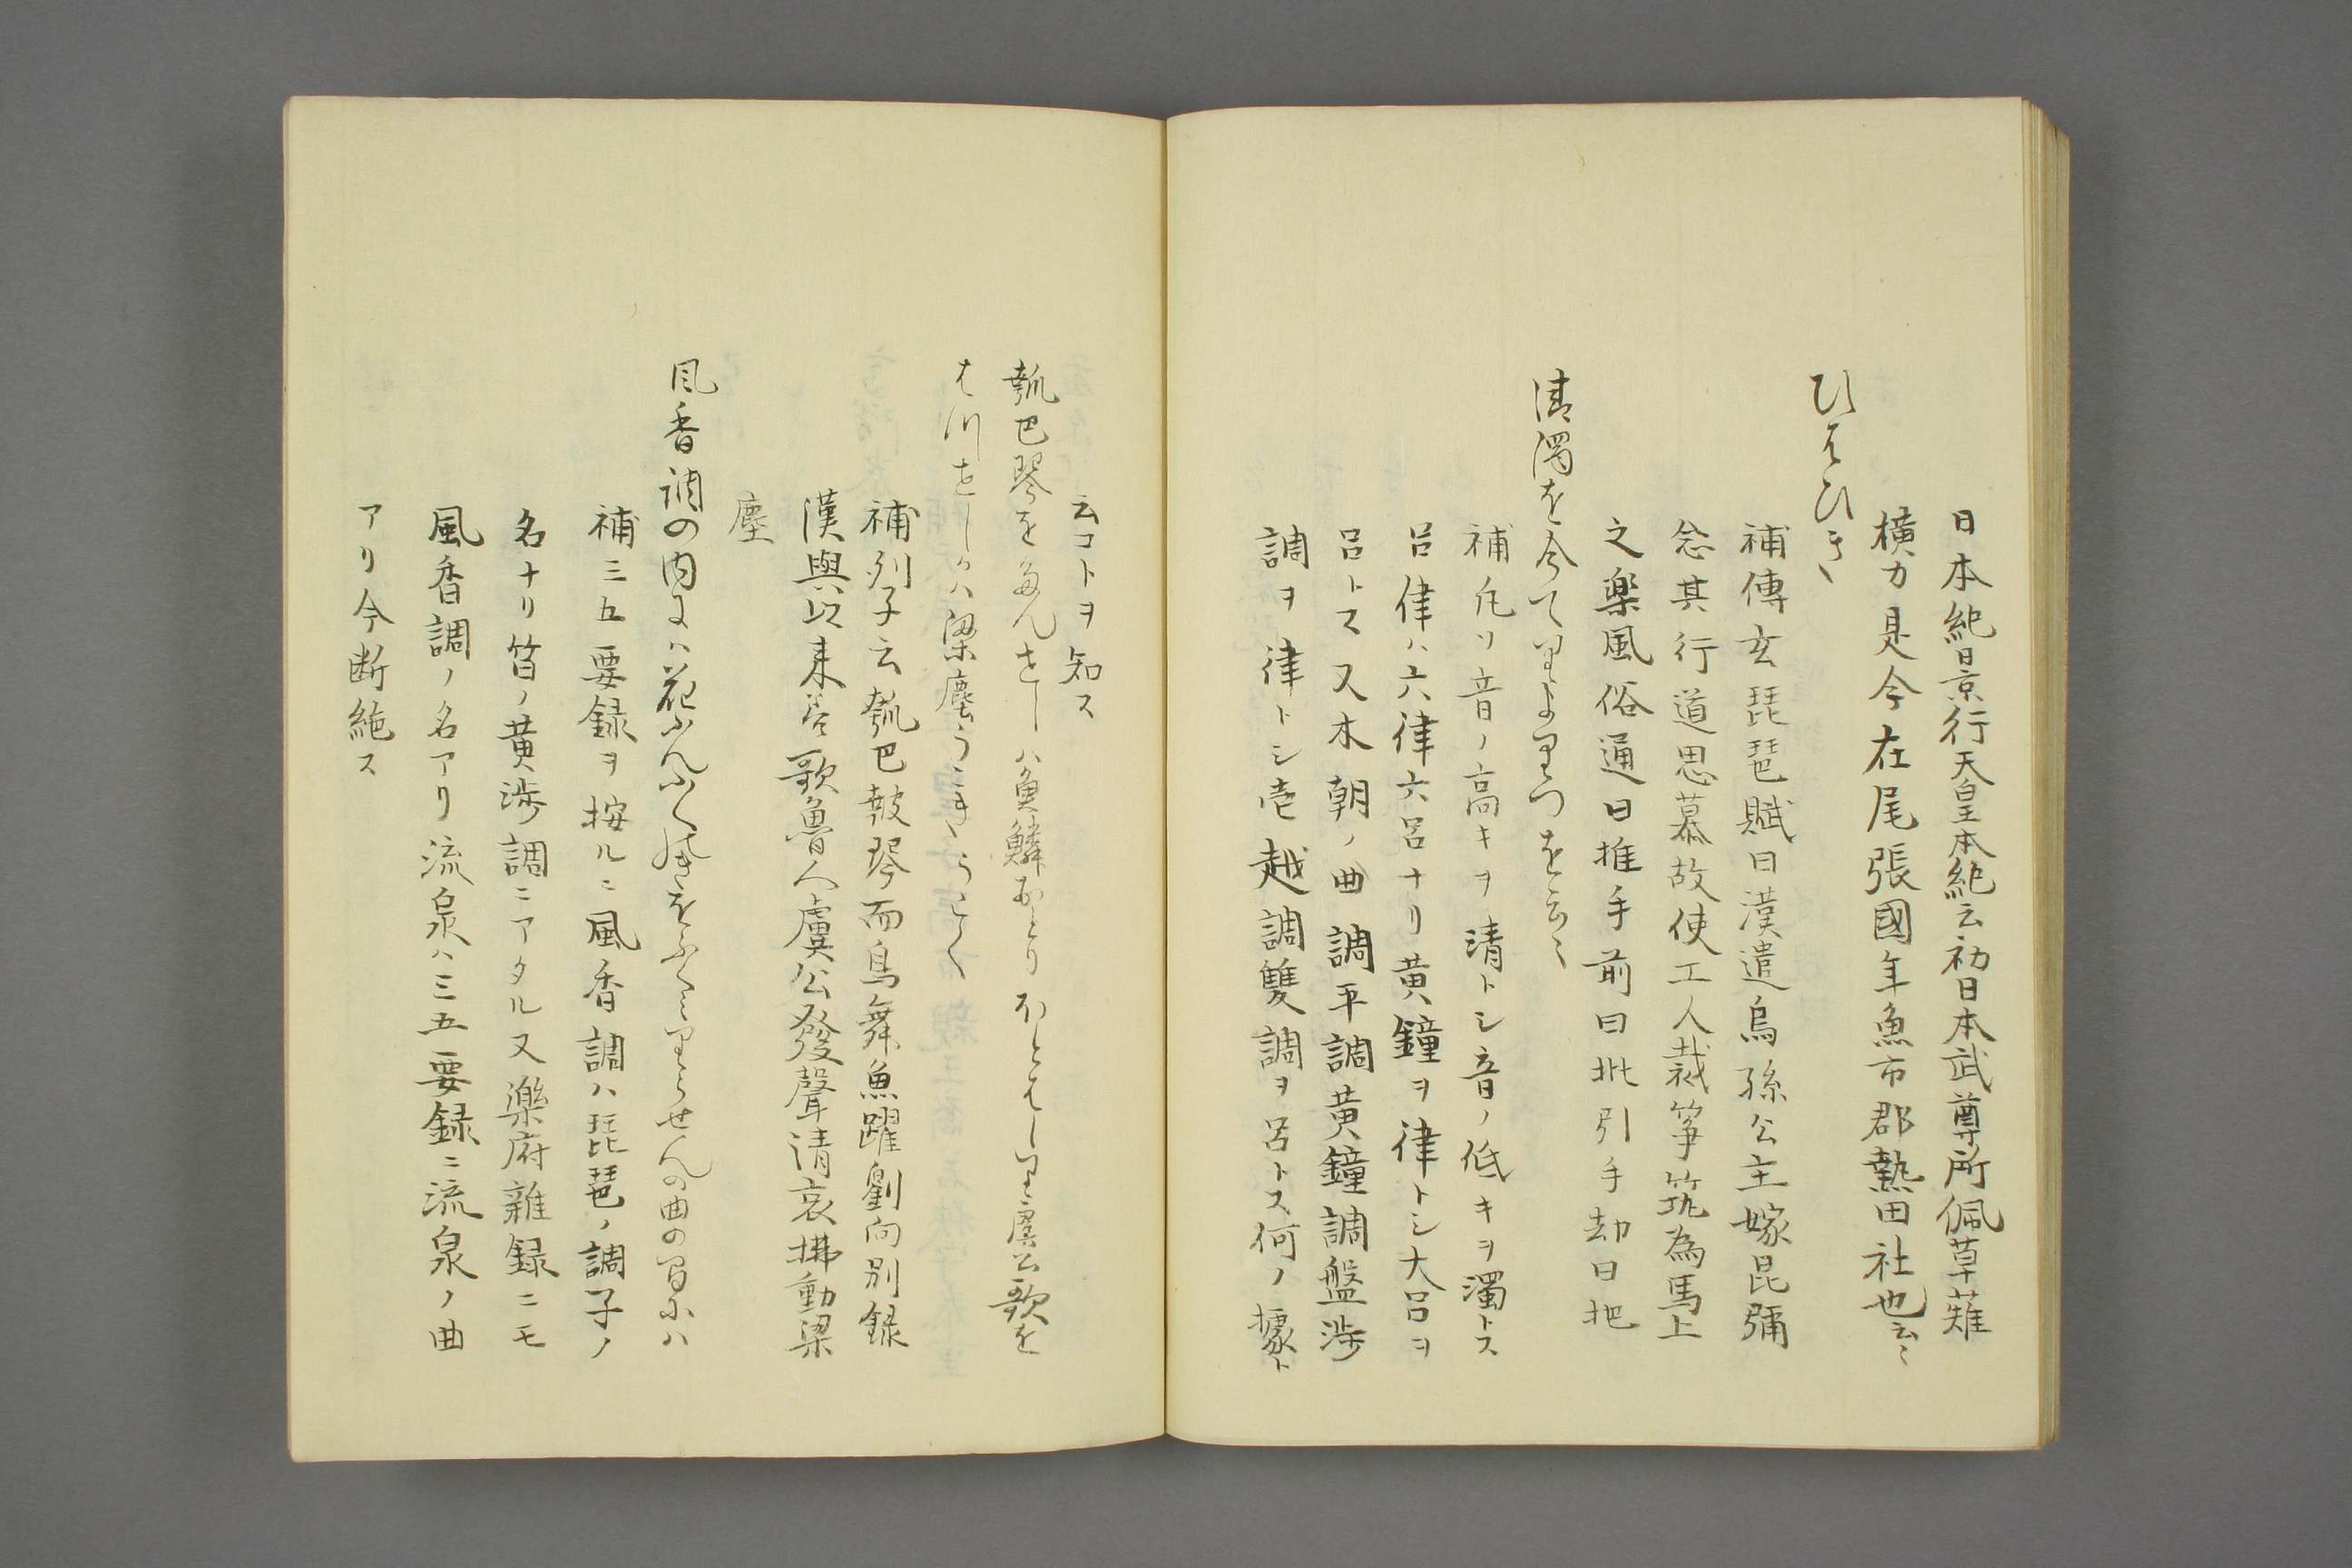 日本紀景行天皇本紀云初日本武尊所佩草薙
横刀是今在尾張國年魚市郡熱田社也云〻
ひはひき
補傳玄琵琶賦曰漢遣烏孫公主嫁昆彌
念其行道思慕故使工人裁箏筑為馬上
之楽風俗通曰推手前曰批引手却曰把
清濁を分て里よ里つを云〻
補凡ソ音ノ高キヲ清トシ音ノ低キヲ濁トス
呂律ハ六律六呂ナリ黄鐘ヲ律トシ大呂ヲ
呂トス又本朝ノ曲調平調黄鐘調盤渉
調ヲ律トシ壱越調雙調ヲ呂トス何ノ據ト
云コトヲ知ス
瓠巴琴をたんせしハ魚鱗おとりほとはしり虞公歌を
はつせしかハ梁塵うこきうこく
補列子云瓠巴鼓琴而鳥舞魚躍劉向別録
漢興以来善歌魯人虞公發聲清哀拂動梁
塵
風香調の内にハ花ふんふく氣をふくミりうせんの曲の間にハ
補三五要録ヲ按ルニ風香調ハ琵琶ノ調子ノ
名ナリ笛ノ黄渉調ニアタル又樂府雜録ニモ
風香調ノ名アリ流泉ハ三五要録ニ流泉ノ曲
アリ今断絶ス